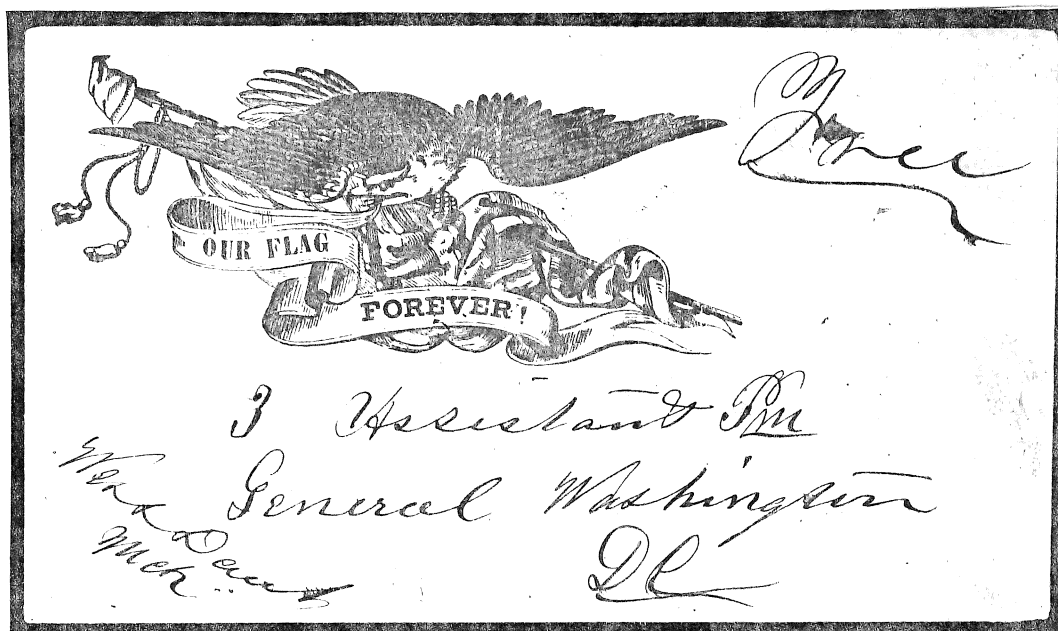 Free
OUR FLAG
FOREVER!
3 Assistant Pm
General Washington
DC
Mch